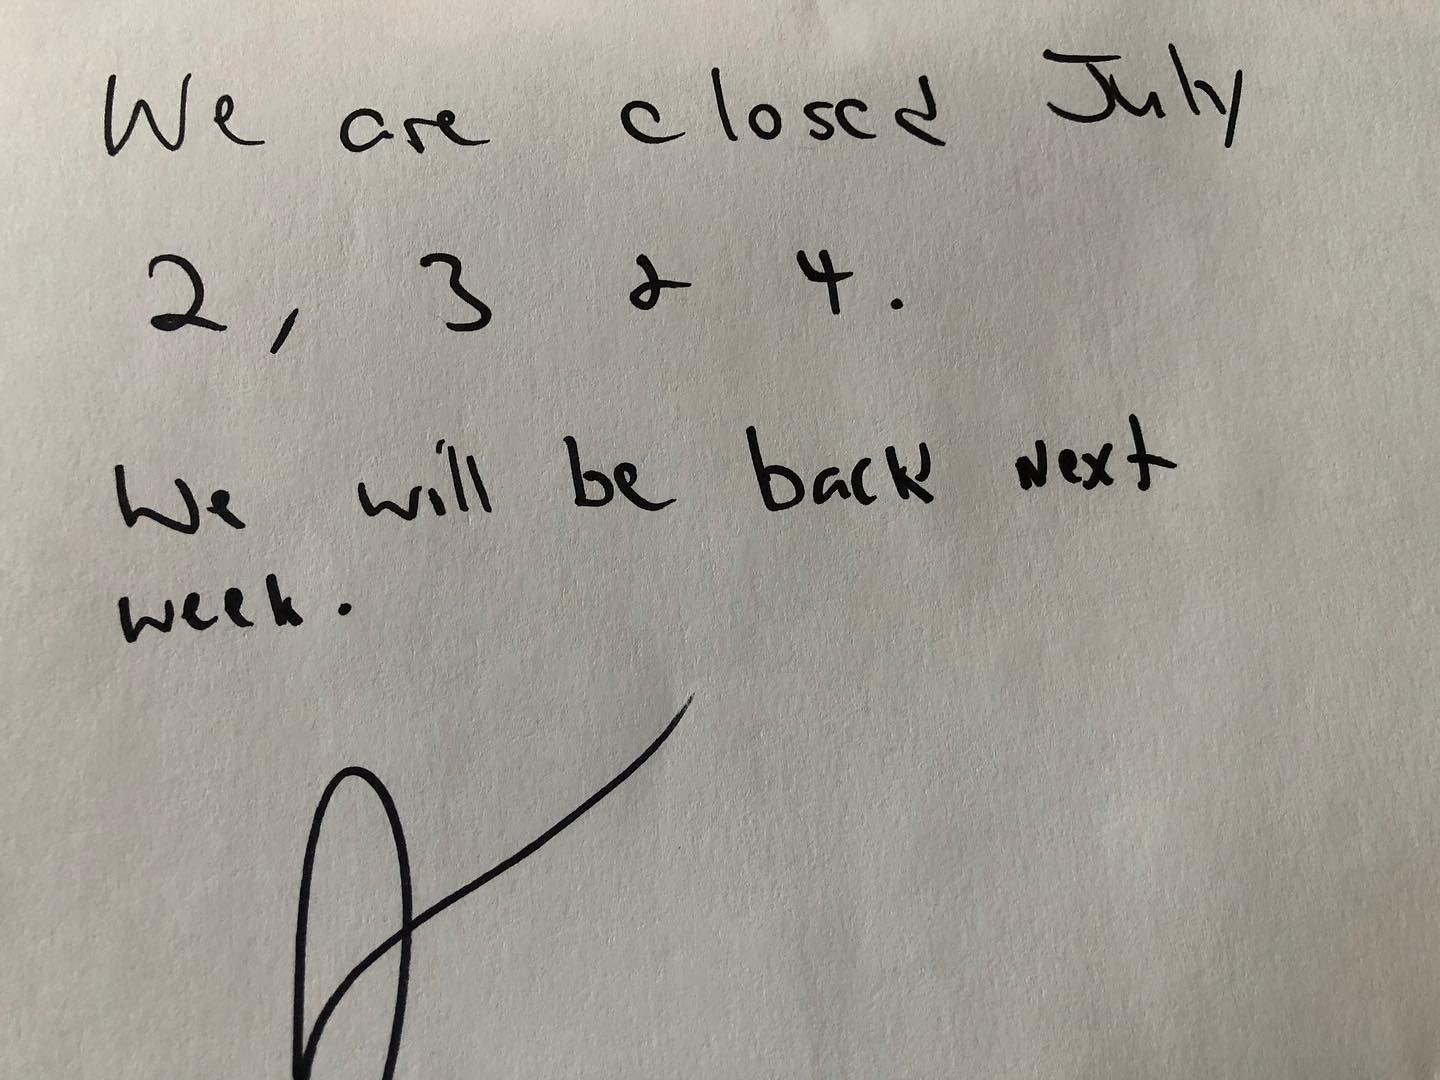 We are closed July
2, 3 & 4.
We will be back Next
week.